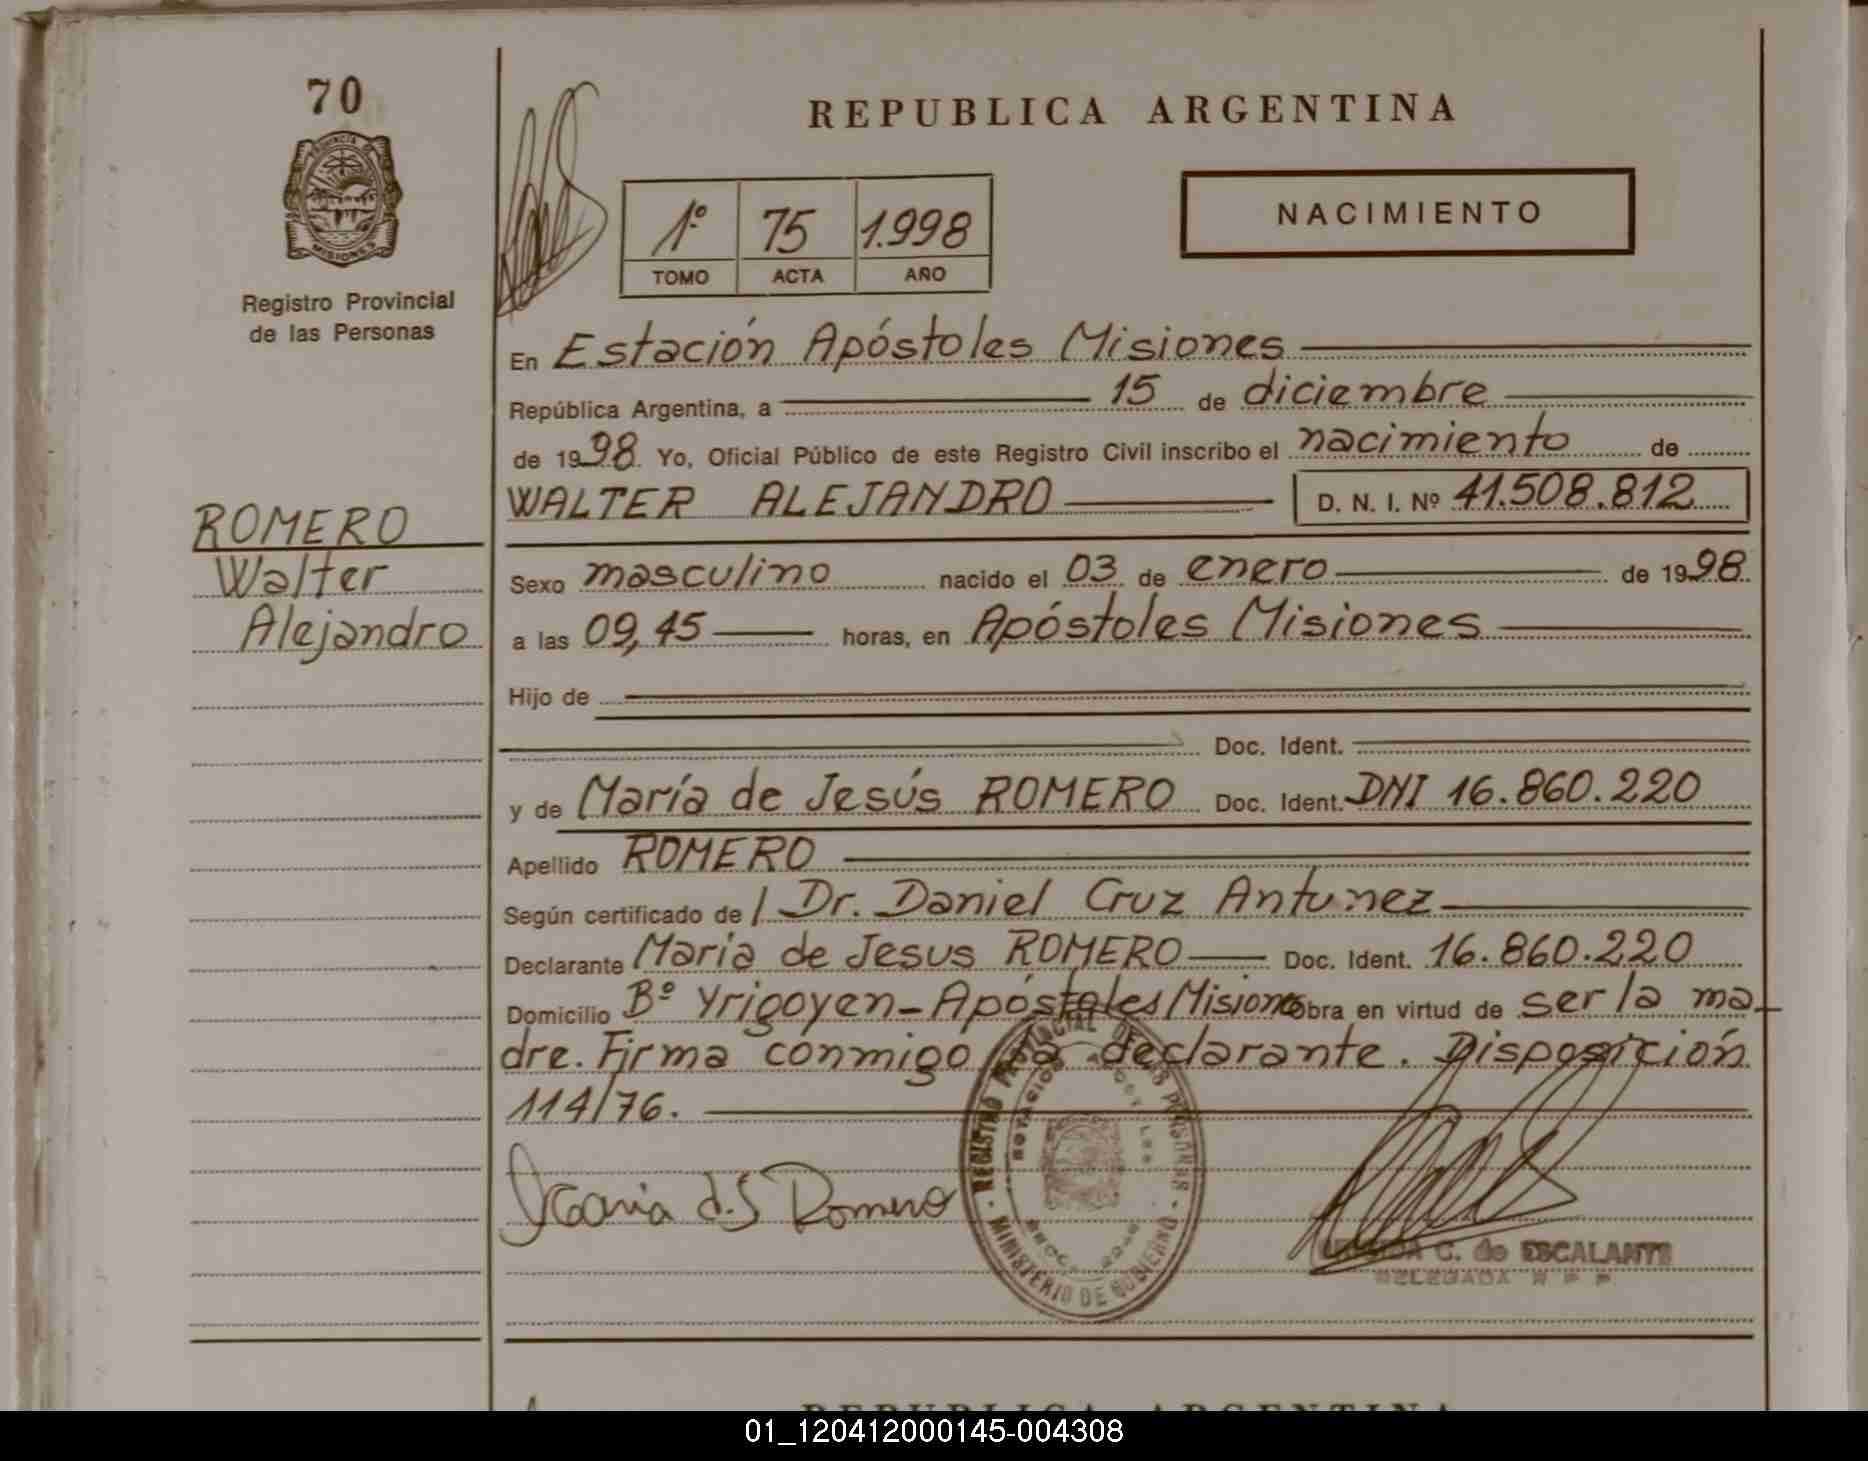 70
PROVINCIA DE
MISIONES
Registro Provincial
de las Personas
REPUBLICA ARGENTINA
1º 75 1.998
TOMO ACTA AÑO
NACIMIENTO
En Estación Apóstoles Misiones
República Argentina, a 15 de diciembre
de 1998. Yo, Oficial Público de este Registro Civil inscribo el nacimiento de
WALTER ALEJANDRO D. N. I. Nº 41.508.812
ROMERO
Walter
Alejandro
Sexo masculino nacido el 03 de enero de 1998.
a las 09,45 horas, en Apóstoles Misiones
Hijo de
Doc. Ident.
y de María de Jesús ROMERO Doc. Ident. DNI 16.860.220
Apellido ROMERO
Según certificado de / Dr. Daniel Cruz Antunez
Declarante Maria de Jesus ROMERO Doc. Ident. 16.860.220
Domicilio Bº Yrigoyen-Apóstoles Misiones Obra en virtud de ser la ma-
dre. Firma conmigo la declarante. Disposición
114/76.
Maria d.J Romero
REGISTRO PROVINCIAL DE LAS PERSONAS
MINISTERIO DE GOBIERNO
C. de ESCALANTE
DELEGADA R P P
REPUBLICA ARGENTINA
01_120412000145-004308